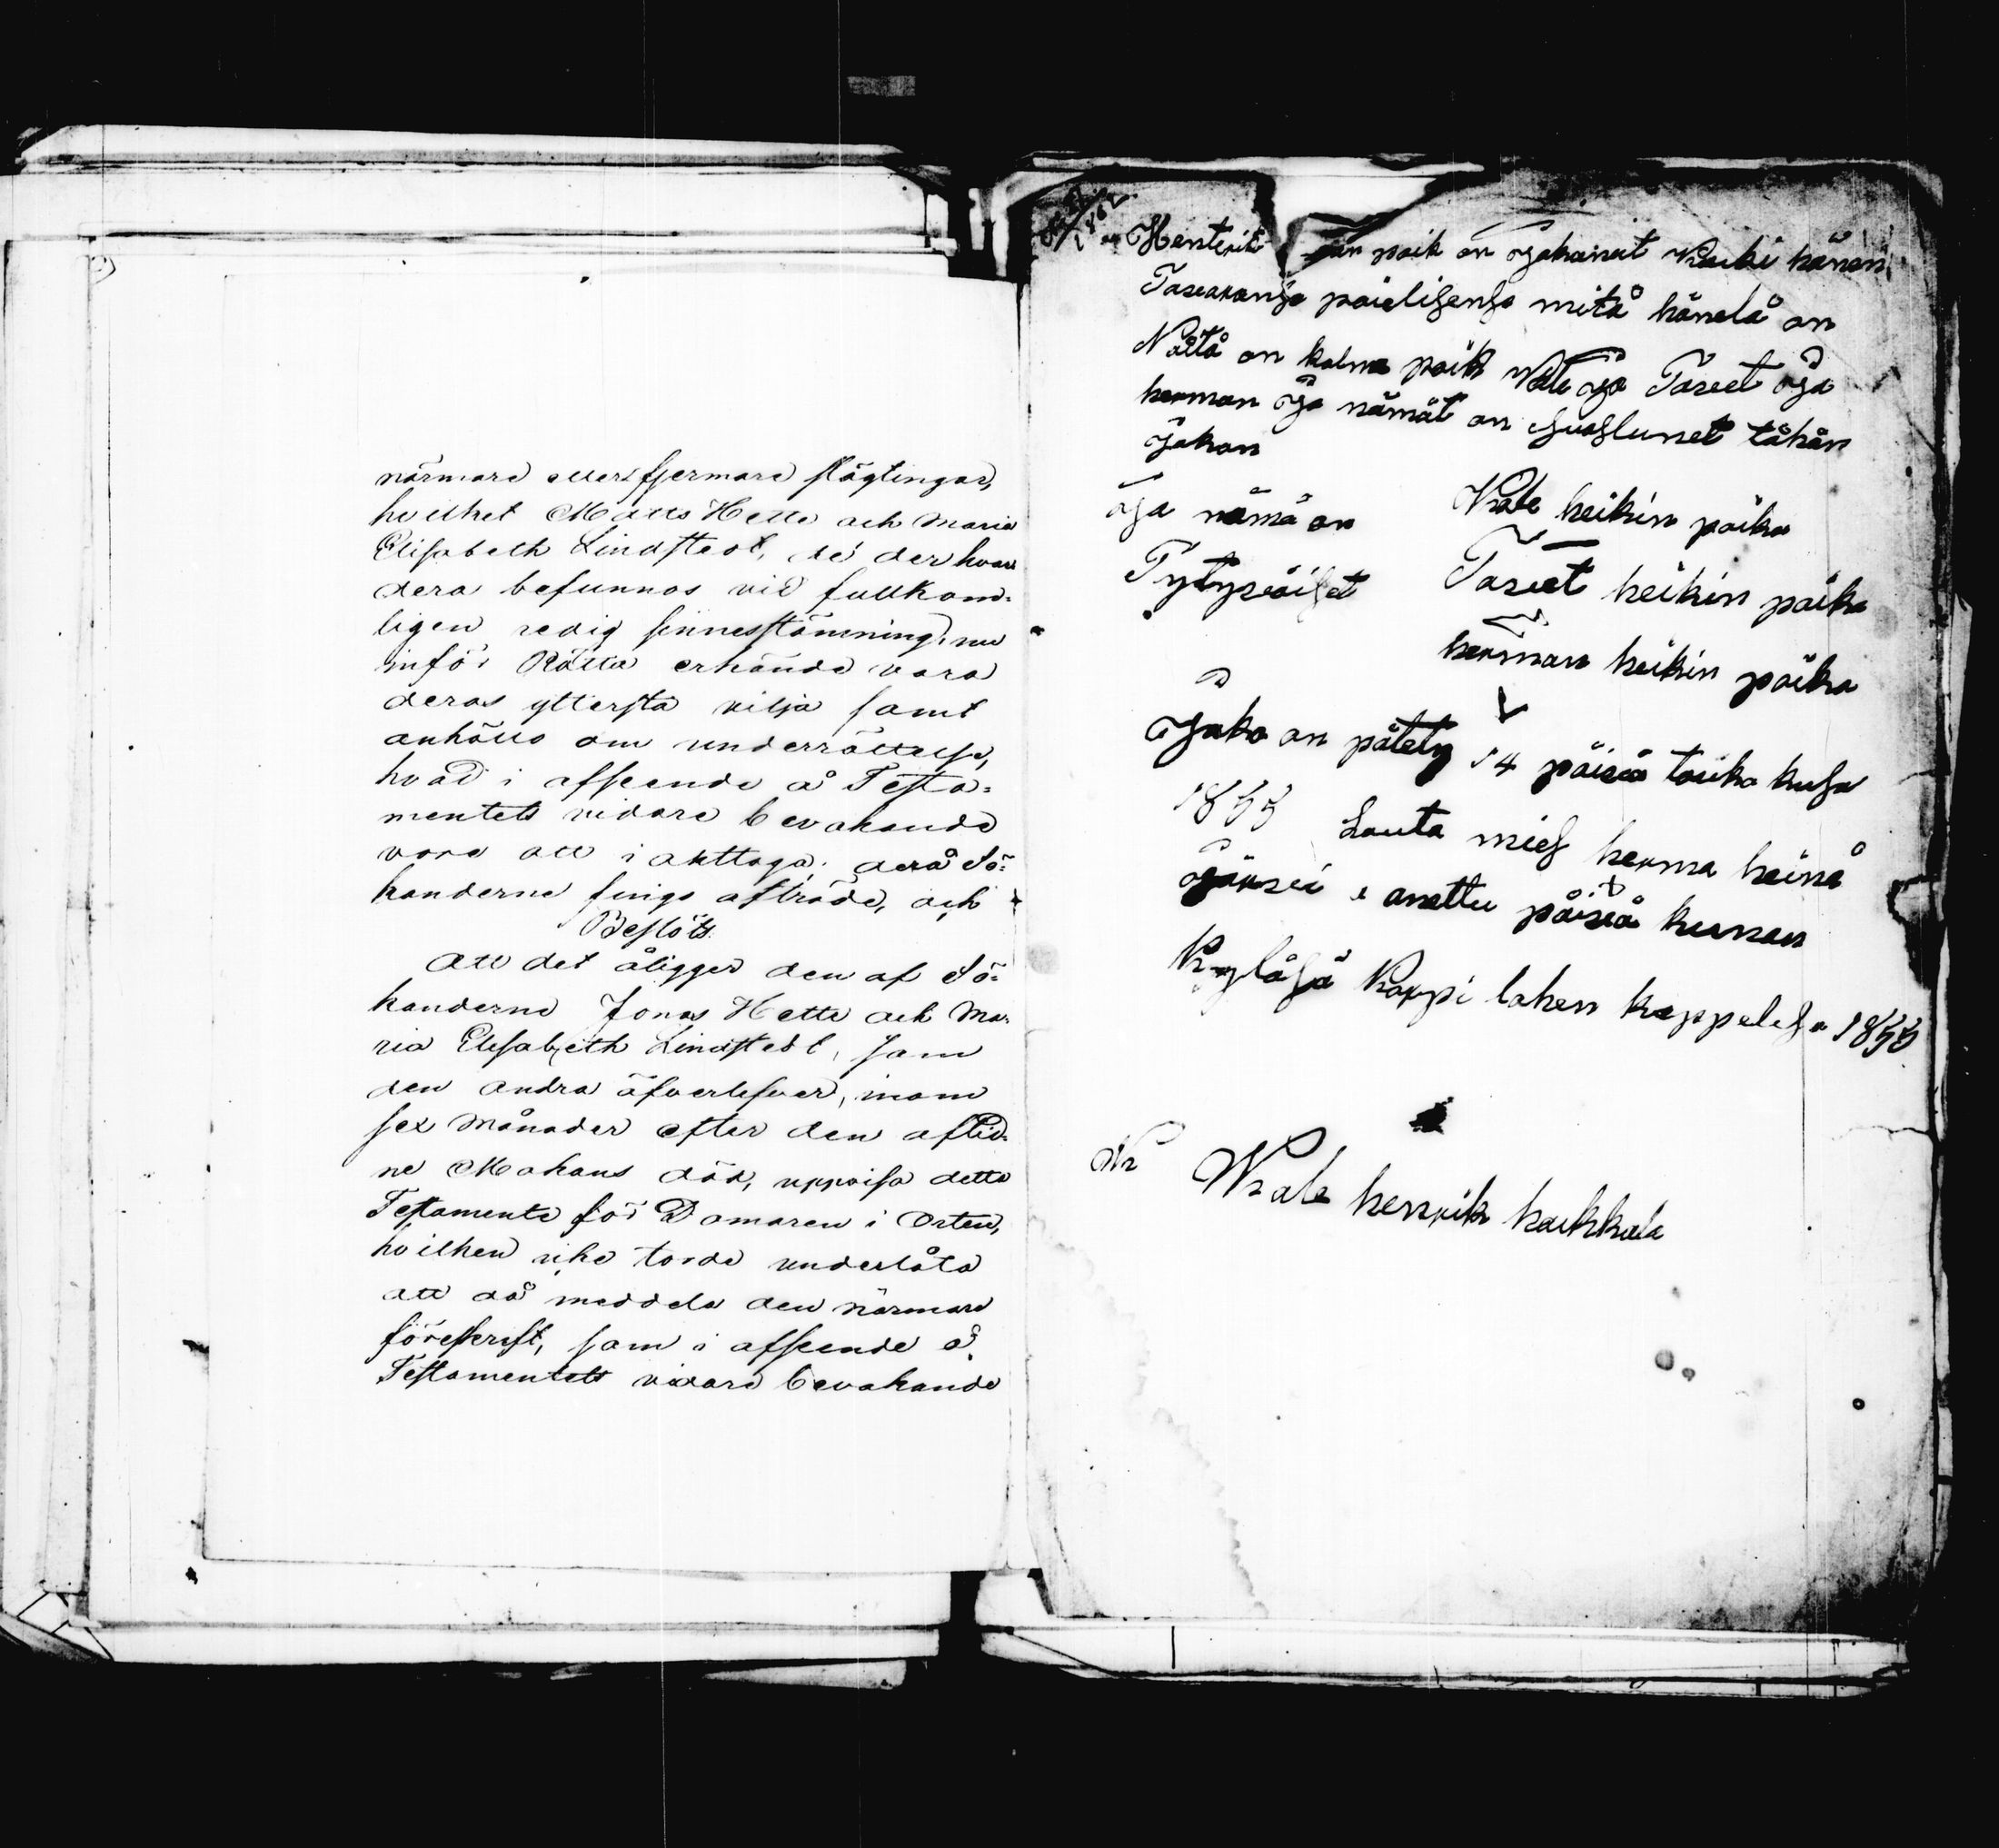 närmare eller fjermare slägtingar,
hvilket Matts Hette och Maria
Elisabeth Lindstedt, de der hvar
dera befunnos vid fullkom-
ligen redig sinnesstämning, nu
inför Rätta erkände vara
deras yttersta vilja samt
anhöllo om underrättelse,
hvad i afseende å Testa-
mentets vidare bevakande
vore att i akttaga; derå Sö-
kanderne fingo afträda, och
Beslöts:
Att det åligger den af Sö-
kanderne Jonas Hette och Ma-
ria Elisabeth Lindstedt, som
den andra öfverlefver, inom
sex Månader efter den aflid-
ne Makans död, uppvisa detta
Testamente för Domaren i Orten,
hvilken icke torde underlåta
att då meddela den närmare
föreskrift, som i afseende å
Testamentets vidare bevakande
1862
Hentrik poik on jakanut kaiki hänen
Tavaransa päälisensä mitä hänelä on
Nättä on kolme poik Kale ja Tavet ja
herman ja nämät on suoslunet tähän
jakon
ja nämä on Kale heikin poika
Tytyväiset Tavet heikin poika
herman heikin poika
Jako on pätety 14 päivä touko kusa
1855 Lauta mies herma heinä
järvei anettu päivä kunan
Kylåsä Kappi lahen kappelisa 1855
Kale henrik kaikkala